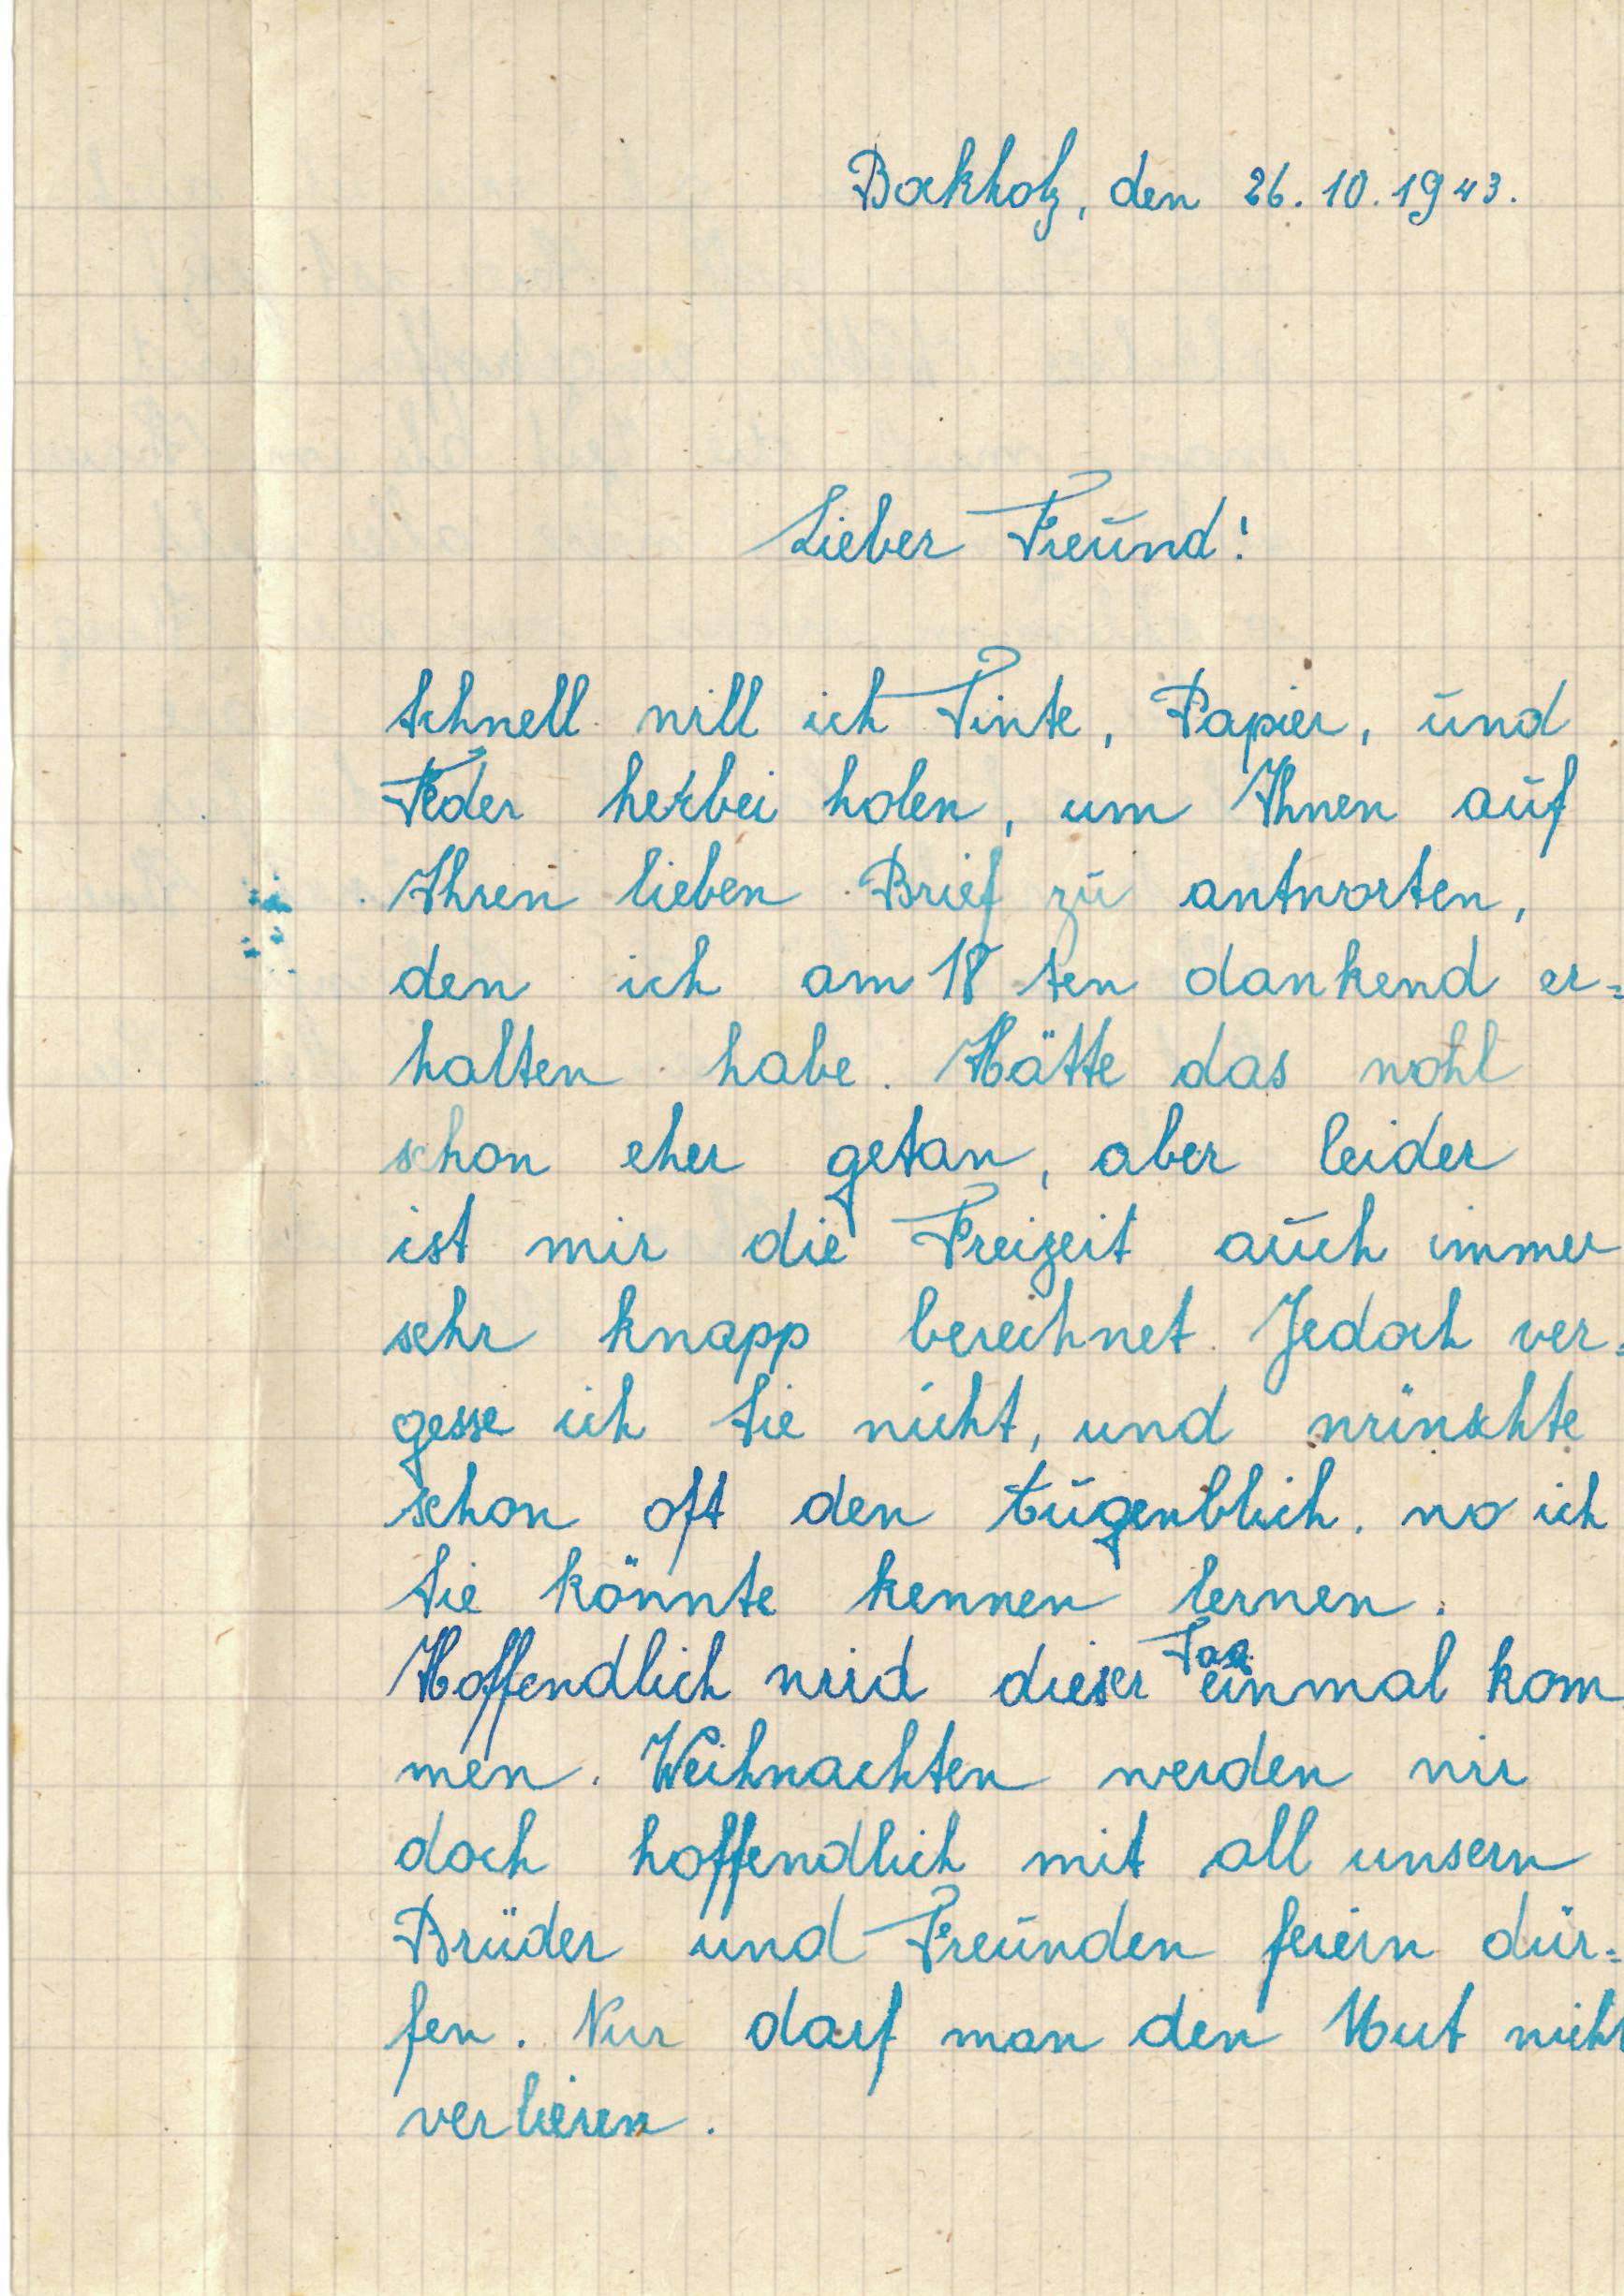 Bockholz, den 26.10.1943.
Lieber Freund!
Schnell will ich Tinte, Papier, und
Feder herbei holen, um Ihnen auf
Ihren lieben Brief zu antworten,
den ich am 18 ten dankend er=
halten habe. Hätte das wohl
schon eher getan, aber leider
ist mir die Freizeit auch immer
sehr knapp berechnet. Jedoch ver=
gesse ich Sie nicht, und wünschte
schon oft den Augenblick. wo ich
Sie könnte kennen lernen.
Hoffendlich wird dieser Tag einmal kom
men. Weihnachten werden wir
doch hoffendlich mit all unsern
Brüder und Freunden feiern dür=
fen. Nur darf man den Mut nicht
verlieren.